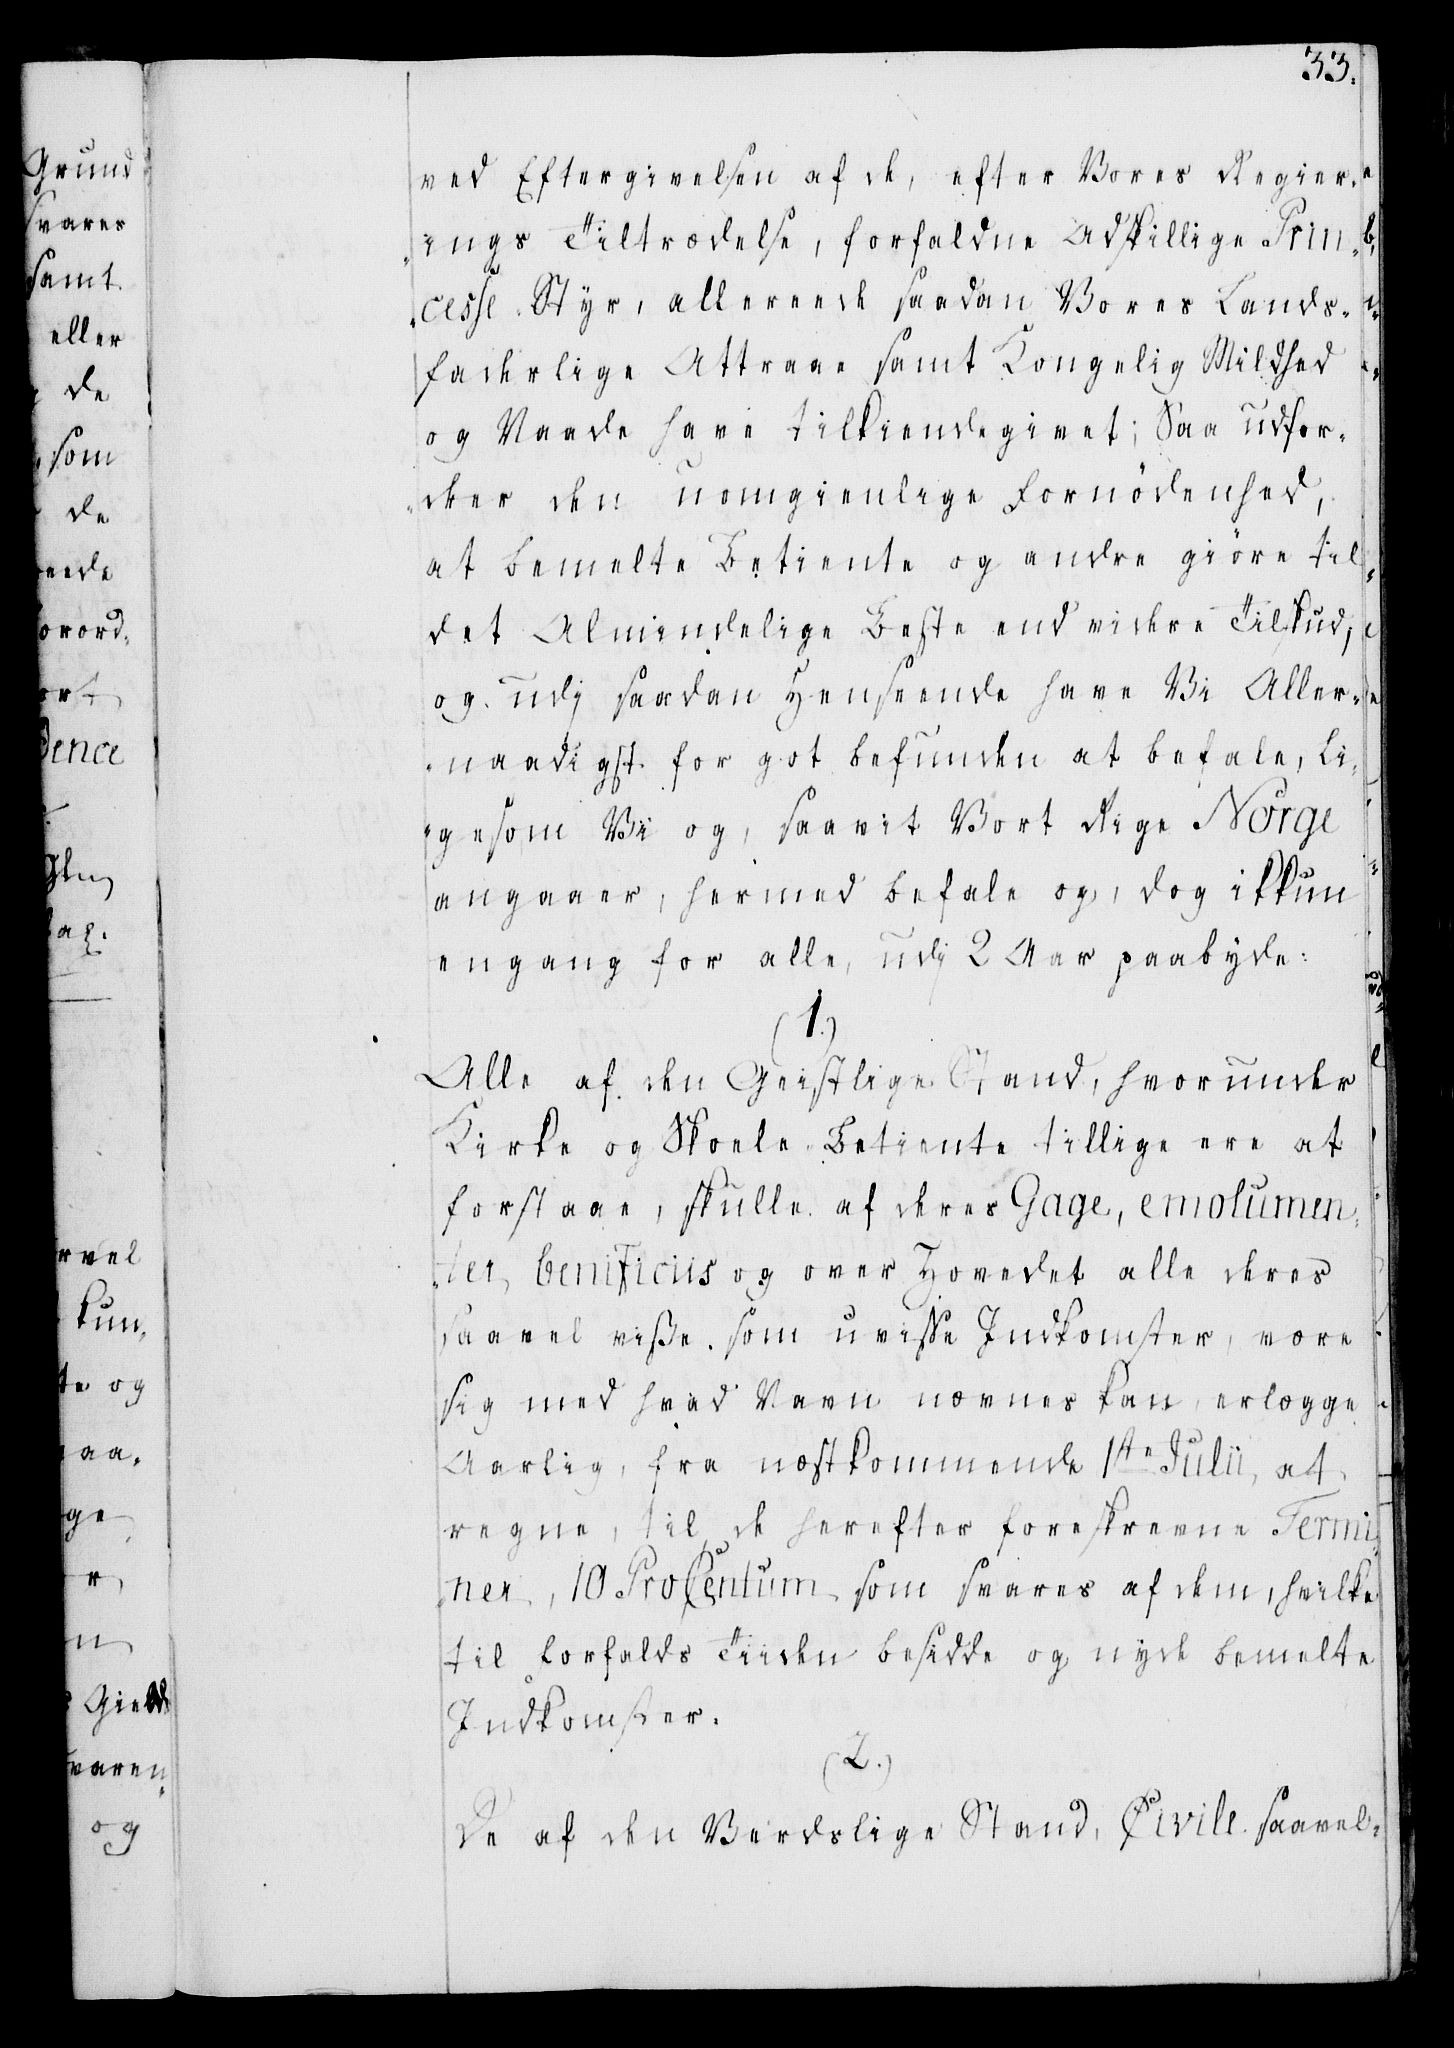 33.
ved Eftergivelsen af de, efter Vores Regier-
ings Tiltrædelse, forfaldne Adskillige Prin-
cesse Styr, allereede saadan Vores Lands-
faderlige Attraae samt Kongelig Mildhed
og Naade have tilkiendegivet; Saa udfor-
drer den uomgienlige Fornödenhed,
at bemelte Betiente og andre giöre til
det Almindelige Beste end videre Tilskud,
og udj saadan Henseende have Vi Aller-
naadigst for got befunden at befale, li-
gesom Vi og, saavit Vort Rige Norge
angaaer, hermed befale og, dog ikkun
engang for alle, udj 2 Aar paabyde:
(1.)
Alle af den Geistlige Stand, hvorunder
Kirke og Skoele-Betiente tillige ere at
forstaae, skulle af deres Gage, emolumen-
ter, benificiis og over Hovedet alle deres
saavel visse som uvisse Indkomster, være
sig med hvad Navn nævnes kan, erlægge
Aarlig, fra næstkommende 1ste Julii at
regne, til de herefter foreskrevne Termi-
ner, 10 ProCentum som svares af dem, hvilke
til Forfalds Tiiden besidde og nyde bemelte
Indkomster.
(2.)
De af den Verdslige Stand, Civile saavel-
Grund
svares
samt
eller
de
som
de
eede
orord-
ort
dence
rvel
kun-
te og
aa-
ge
r
n
Gield
varen-
og